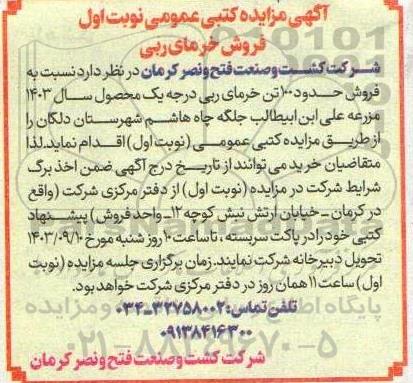 آگهی مزایده کتبی عمومی نوبت اول
فروش خرمای ربی
شرکت کشت و صنعت فتح و نصر کرمان در نظر دارد نسبت به
فروش حدود ۱۰۰ تن خرمای ربی درجه یک محصول سال ۱۴۰۳
مزرعه علی ابن ابیطالب جلگه چاه هاشم شهرستان دلگان را
از طریق مزایده کتبی عمومی (نوبت اول) اقدام نماید. لذا
متقاضیان خرید می توانند از تاریخ درج آگهی ضمن اخذ برگ
شرایط شرکت در مزایده (نوبت اول) از دفتر مرکزی شرکت (واقع
در کرمان - خیابان ارتش نبش کوچه ۱۲ - واحد فروش) پیشنهاد
کتبی خود را در پاکت سربسته، تا ساعت ۱۰ روز شنبه مورخ ۱۴۰۳/۰۹/۱۰
تحویل دبیرخانه شرکت نمایند. زمان برگزاری جلسه مزایده (نوبت
اول) ساعت ۱۱ همان روز در دفتر مرکزی شرکت خواهد بود.
تلفن تماس: ۳۲۷۵۸۰۰۲-۰۳۴
۰۹۱۳۸۴۱۶۳۰۰
شرکت کشت و صنعت فتح و نصر کرمان
۰۲۱-۸۸۳۴۹۶۷۰-۵